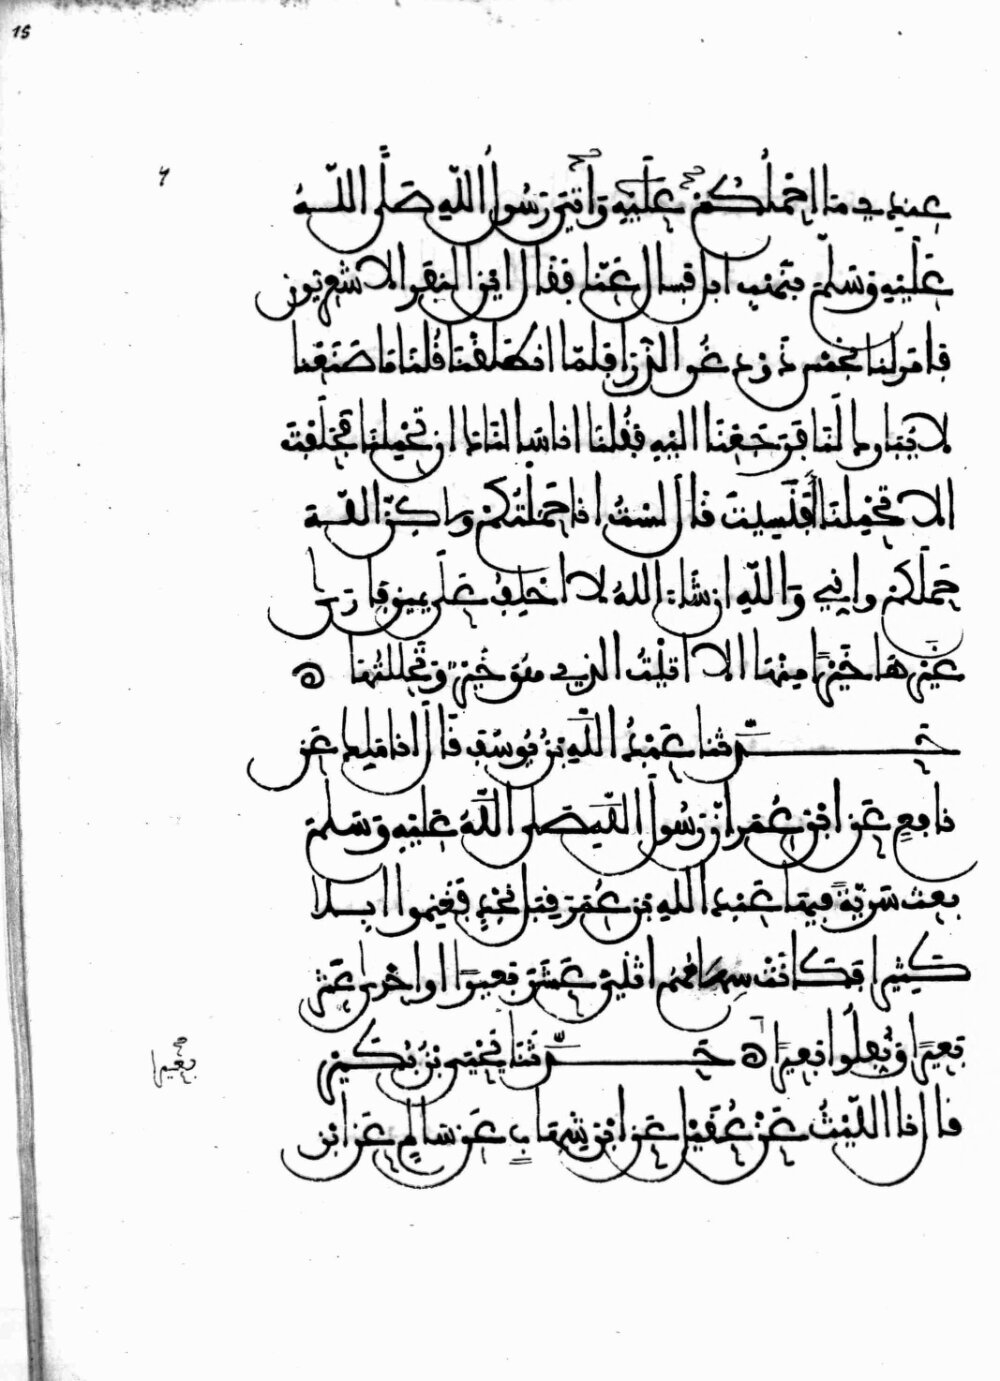 15
عندي ما احملكم عليه واتي رسول الله صلى الله
عليه وسلم بنهب ابل فسال عنا فقال اين النفر الاشعريون
فامر لنا بخمس ذود غر الذرا فلما انطلقنا قلنا ما صنعنا
لا يبارك لنا فرجعنا اليه فقلنا انا سالناك ان تحملنا فحلفت
الا تحملنا افنسيت قال لست انا حملتكم ولكن الله
حملكم واني والله ان شاء الله لا احلف على يمين فارى
غيرها خيرا منها الا اتيت الذي هو خير وتحللتها
حدثنا عبد الله بن يوسف قال انا ملك عن
نافع عن ابن عمر ان رسول الله صلى الله عليه وسلم
بعث سرية فيها عبد الله بن عمر قبل نجد فغنموا ابلا
كثيرا فكانت سهامهم اثني عشر بعيرا او احد عشر
بعيرا ونفلوا بعيرا حدثنا يحيى بن بكير
بعيرا
قال انا الليث عن عقيل عن ابن شهاب عن سالم عن ابن